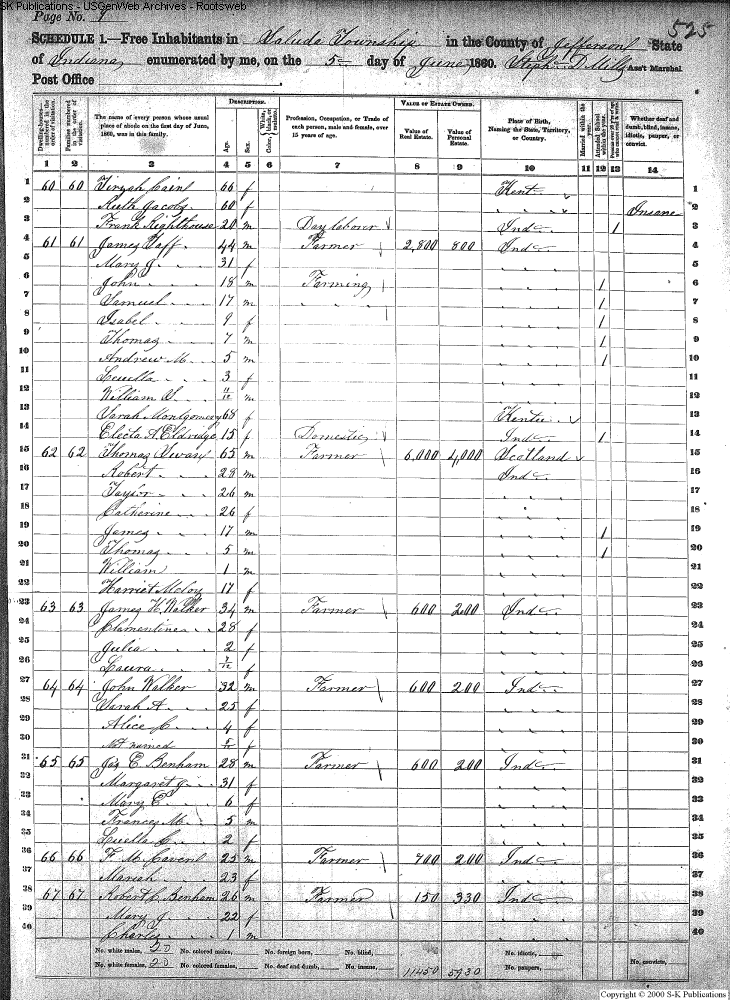 SK Publications - USGenWeb Archives - Rootsweb
Page No. 9
525
SCHEDULE 1.—Free Inhabitants in Saluda Township in the County of Jefferson State
of Indiana enumerated by me, on the 5 day of June, 1860. Steph. D. Mills Ass't Marshal.
Post Office
Dwelling-houses—numbered in the order of visitation.
Families numbered in the order of visitation.
The name of every person whose usual place of abode on the first day of June, 1860, was in this family.
DESCRIPTION.
Age.
Sex.
Color, White, black, or mulatto.
Profession, Occupation, or Trade of each person, male and female, over 15 years of age.
VALUE OF ESTATE OWNED.
Value of Real Estate.
Value of Personal Estate.
Place of Birth, Naming the State, Territory, or Country.
Married within the year.
Attended School within the year.
Persons over 20 y'rs of age who cannot read & write.
Whether deaf and dumb, blind, insane, idiotic, pauper, or convict.
1 2 3 4 5 6 7 8 9 10 11 12 13 14
1 60 60 Tirzah Cain 66 f Kent 1
2 Ruth Jacoby 60 f " " Insane 2
3 Frank Righthouse 20 m Day labourer Ind 1 3
4 61 61 James Taff 44 m Farmer 2,800 800 Ind 4
5 Mary J. " 31 f " " 5
6 John " 18 m Farming " " 1 6
7 Samuel " 17 m " " " " 1 7
8 Isabel " 9 f " " 1 8
9 Thomas " 7 m " " 1 9
10 Andrew M. " 5 m " " 1 10
11 Luella " 3 f " " 11
12 William S. " 11/12 m " " 12
13 Sarah Montgomery 68 f Kentu 13
14 Electa A. Eldridge 15 f Domestic Ind 1 14
15 62 62 Thomas Swan 65 m Farmer 6,000 4,000 Scotland 15
16 Robert " 28 m Ind 16
17 Taylor " 26 m " " 17
18 Catherine " 26 f " " 18
19 James " 17 m " " 1 19
20 Thomas " 5 m " " 1 20
21 William 1 m " " 21
22 Harriet McCoy 17 f " " 22
23 63 63 James H. Walker 34 m Farmer 600 200 Ind 23
24 Clementine " 28 f " " 24
25 Julia " 2 f " " 25
26 Laura " /12 f " " 26
27 64 64 John Walker 32 m Farmer 600 200 Ind 27
28 Sarah A. " 25 f " " 28
29 Alice C. " 4 f " " 29
30 Not named /12 f " " 30
31 65 65 Jas E. Benham 28 m Farmer 600 200 Ind 31
32 Margaret J. " 31 f " " 32
33 Mary E. " 6 f " " 33
34 Frances M. 5 m " " 34
35 Luella C. " 2 f " " 35
36 66 66 F. M. 25 m Farmer 700 200 Ind 36
37 Mariah " 23 f " " 37
38 67 67 Robert C. Benham 26 m Farmer 150 330 Ind 38
39 Mary J. " 22 f " " 39
40 Charley " 1 m " " 40
No. white males, 20 No. colored males, No. foreign born, No. blind, No. idiotic, No. convicts,
No. white females, 20 No. colored females, No. deaf and dumb, No. insane, 11450 5930 No. paupers,
Copyright © 2000 S-K Publications